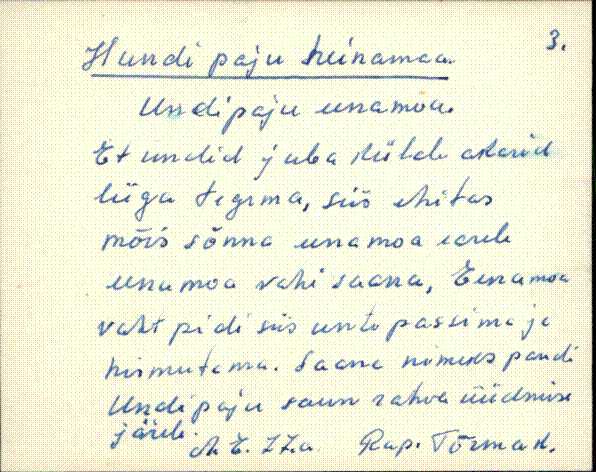 3.
Hundi paju heinamaa.
Undipaju unamoa.
Et undid juba külale akasid
liiga tegema, siis ehitas
mõis sõnna unamoa earele
unamoa vahi saana, Eenamoa
vaht pidi siis unte passima ja
hirmutama. Saana nimeks pandi
Undipaju saun rahva üüdmise
järele.
Rap. Tõrmak.